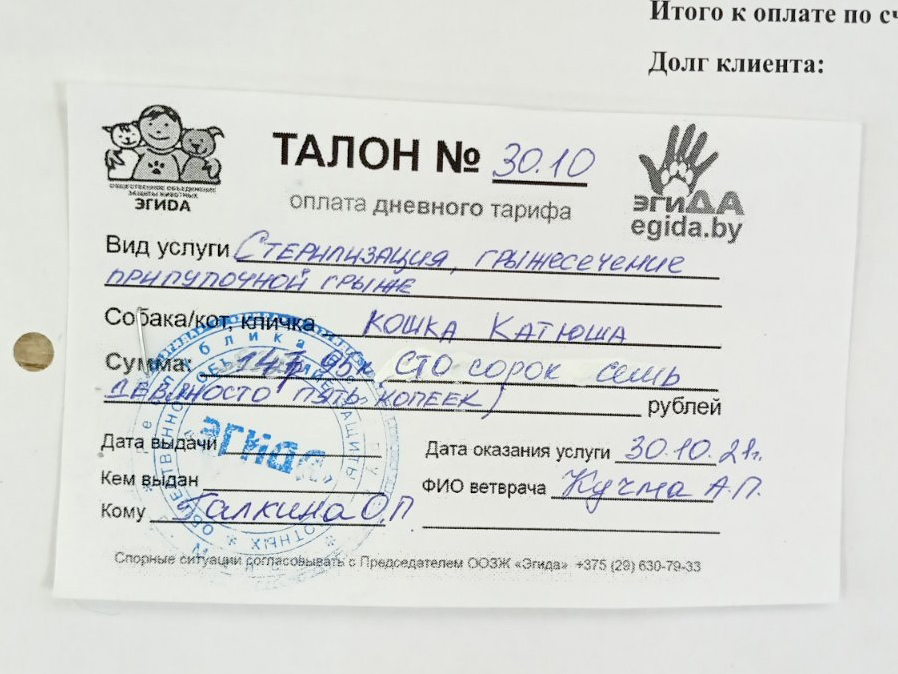 Итого к оплате по сч
Долг клиента:
ОБЩЕСТВЕННОЕ ОБЪЕДИНЕНИЕ
ЗАЩИТЫ ЖИВОТНЫХ
ЭГИДА
ТАЛОН № 30.10
оплата дневного тарифа
эгиДА
egida.by
Вид услуги Стерилизация, грыжесечение
припупочной грыже
Собака/кот, кличка кошка Катюша
Сумма: 147, 95к (Сто сорок семь
девяносто пять копеек) рублей
Дата выдачи
Кем выдан
Кому Галкина О.П
Дата оказания услуги 30.10.21г.
ФИО ветврача Кучма А.П.
«ЭГИДА»
Спорные ситуации согласовывать с Председателем ООЗЖ «Эгида» +375 (29) 630-79-33